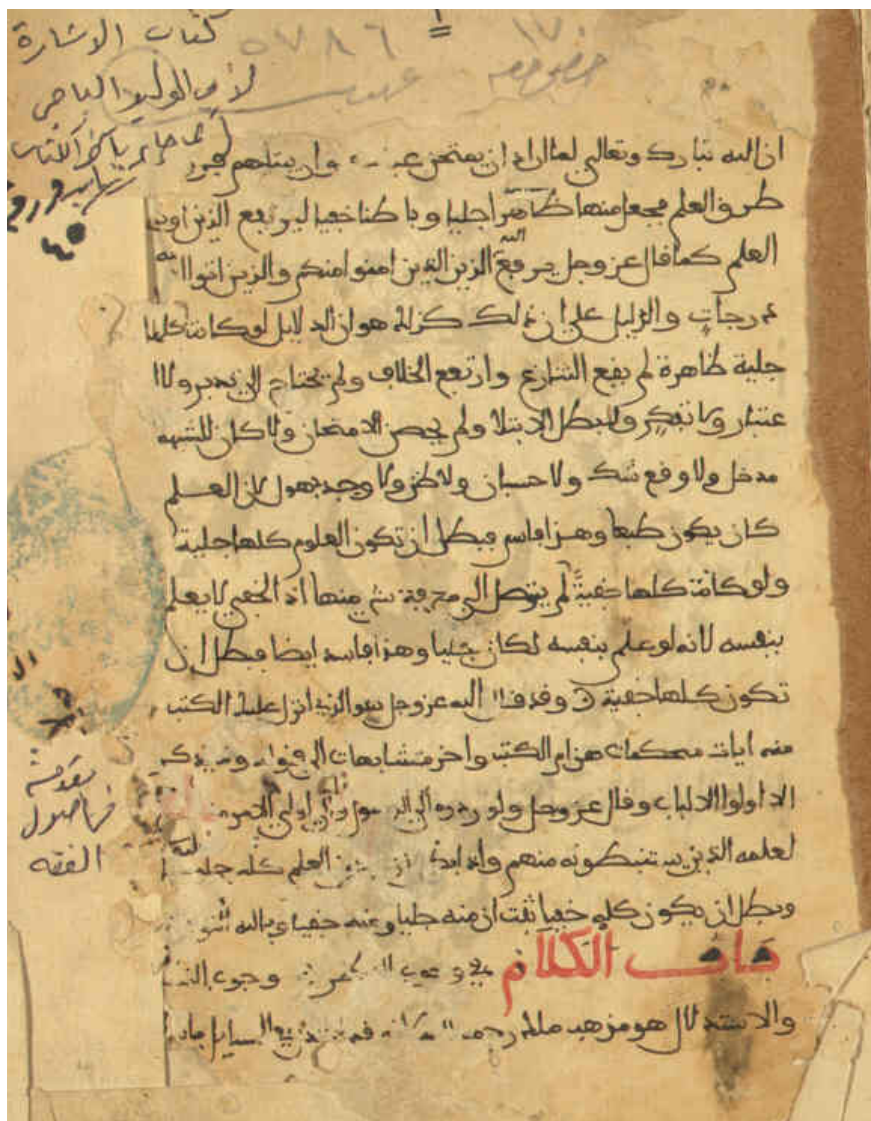 كتاب الاشارة
١٧٠
٥٧٨٦
لابي الوليد الباجي
ان الله تبارك وتعالى لما اراد ان يمتحن عبده وان يبتليهم فجر
طرق العلم فجعل منها ظاهرا جليا وباطنا خفيا ليرفع الذين اوتوا
العلم كما قال عز وجل يرفع الله الذين امنوا منكم والذين اتوا
درجات والدليل على ان ذلك كذلك هو ان الدلايل لو كانت كلها
جلية ظاهرة لم يقع التنازع وارتفع الخلاف ولم يحتاج الى تدبر ولا ا
عتبار ولا تفكر ولبطل الابتلا ولم يحصن الامتحان ولا كان للشبه
مدخل ولا وقع شك ولا حسبان ولا ظن ولا وجد جهول لان العلم
كان يكون طبعا وهذا فاسد فبطل ان تكون العلوم كلها جلية
ولو كانت كلها خفية لم يتوصل الى معرفة شي منها اذ الخفي لا يعلم
بنفسه لانه لو علم بنفسه لكان جليا وهذا فاسد ايضا فبطل ان
تكون كلها خفية وقد قال الله عز وجل هو الذي انزل عليك الكتب
منه ايات محكمات هن ام الكتب واخر متشابهات الى قوله وما يذكر
الا اولوا الالباب وقال عز وجل ولو ردوه الى الرسول والى اولي الامر منهم
لعلمه الذين يستنبطونه منهم واذا بطل ان يكون العلم كله جليا
وبطل ان يكون كله خفيا ثبت ان منه جليا ومنه خفيا وبالله
باب الكلام في وجوب النظر وجوب النظر
والاستدلال هو مذهب ملك رحمه الله
مقدمة
في اصول
الفقه